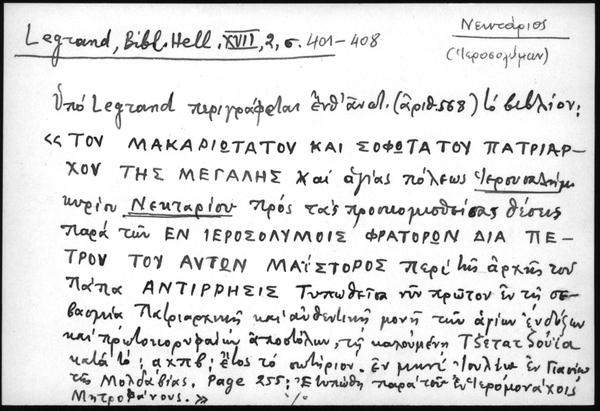 Νεκτάριος
(Ἱεροσολύμων)
Legrand, Bibl. Hell. XVII, 2, σ. 401-408
Ὑπό Legrand περιγράφεται ἐνθ' ἀνωτ. (ἀριθ. 568) τό βιβλίον:
«ΤΟΥ ΜΑΚΑΡΙΩΤΑΤΟΥ ΚΑΙ ΣΟΦΩΤΑΤΟΥ ΠΑΤΡΙΑΡ-
ΧΟΥ ΤΗΣ ΜΕΓΑΛΗΣ καί ἁγίας πόλεως Ἱερουσαλήμ
κυρίου Νεκταρίου πρός τάς προσκομισθείσας θέσεις
παρά τῶν ΕΝ ΙΕΡΟΣΟΛΥΜΟΙΣ ΦΡΑΤΟΡΩΝ ΔΙΑ ΠΕ-
ΤΡΟΥ ΤΟΥ ΑΥΤΩΝ ΜΑΪΣΤΟΡΟΣ περί τῆς ἀρχῆς τοῦ
Πάπα ΑΝΤΙΡΡΗΣΙΣ Τυπωθεῖσα νῦν πρῶτον ἐν τῇ σε-
βασμία Πατριαρχικῇ καί αὐθεντικῇ μονῇ τῶν ἁγίων ἐνδόξων
καί πρωτοκορυφαίων ἀποστόλων, τῇ καλουμένῃ Τζετατζούϊα
κατά τό ; αχπβ; ἔτος τό σωτήριον. Ἐν μηνί Ἰουλίῳ ἐν Γιασίῳ
τῆς Μολδαβίας. Page 255: Ἐτυπώθη παρά τοῦ ἐν Ἱερομονάχοις
Μητροφάνους.» ./.